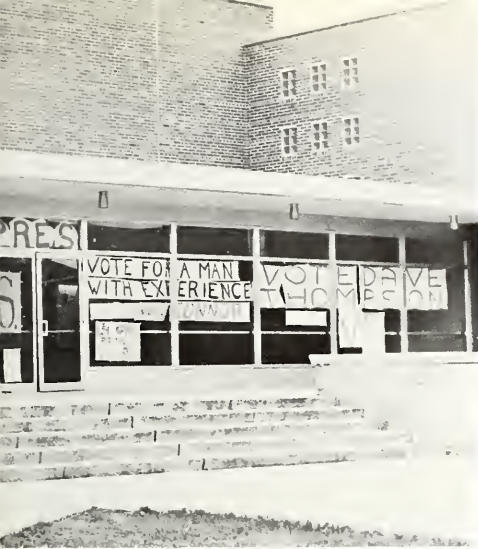 PRES
S
VOTE FOR A MAN
WITH EXPERIENCE
VOTE DAVE
THOMPSON